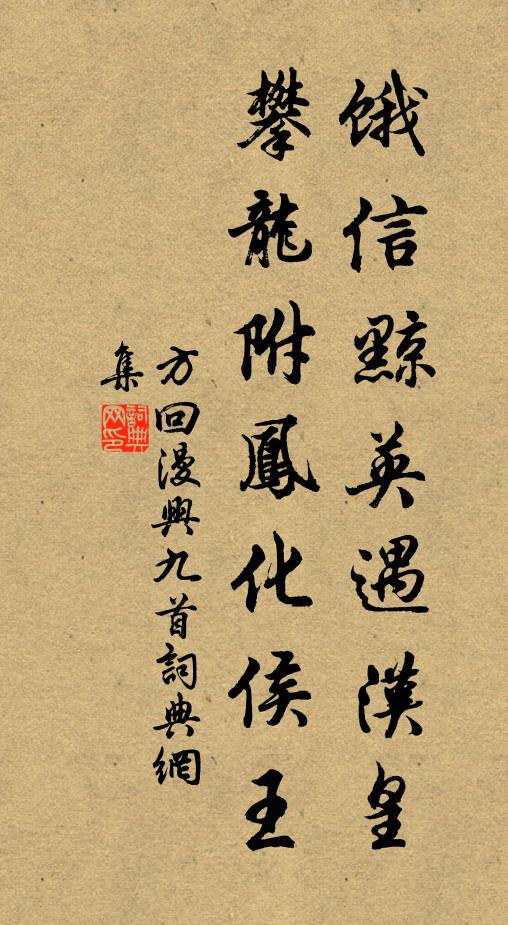 餓信黥英遇漢皇
攀龍附鳳化侯王
方回漫興九首詞典網
集
詞典
网印